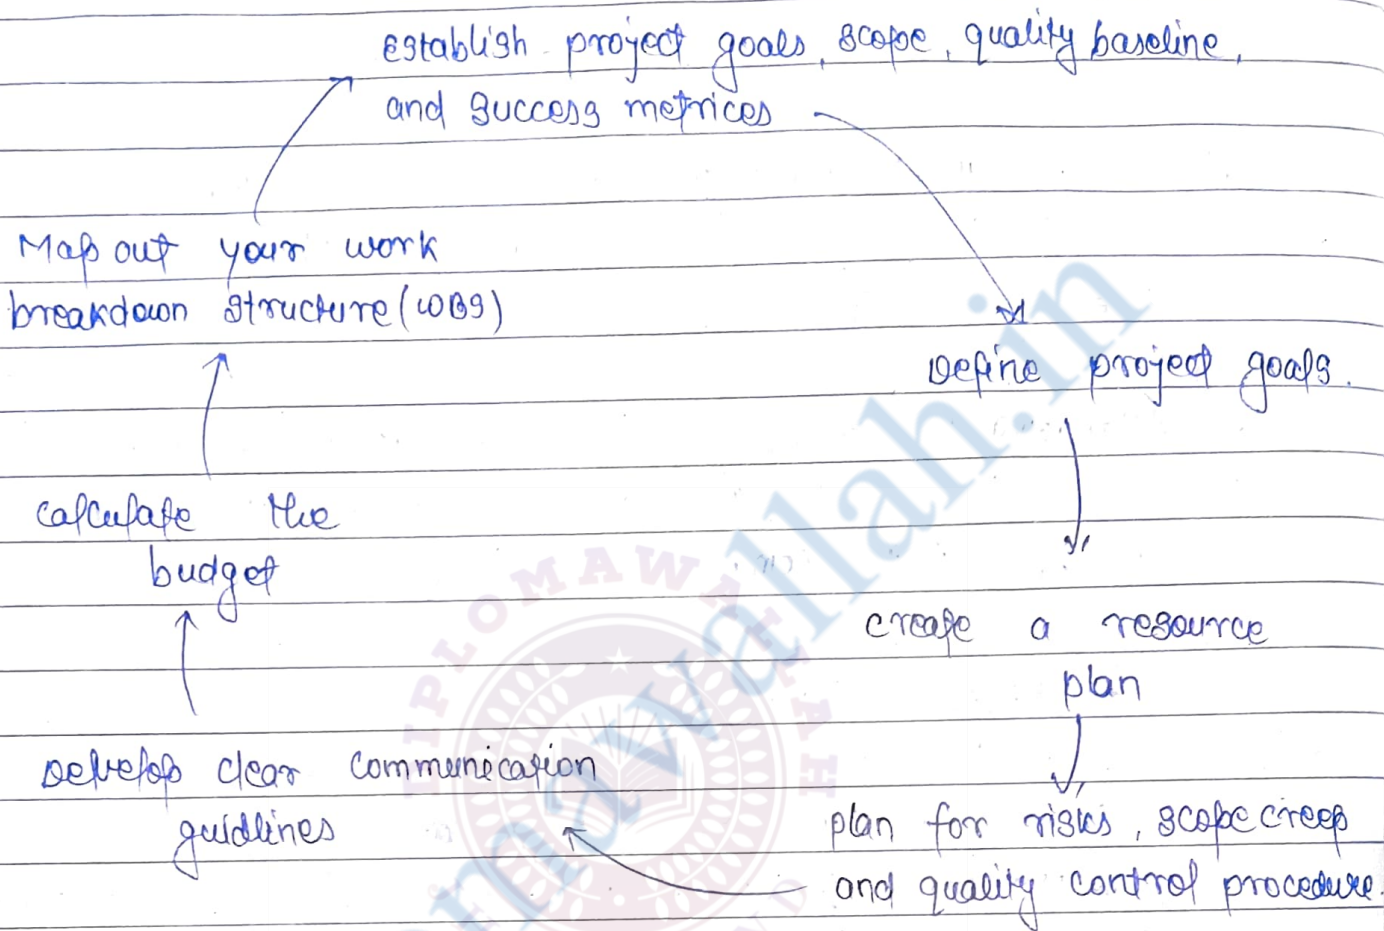 Establish project goals, scope, quality baseline,
and success metrices
Map out your work
breakdown structure (WBS)
Define project goals.
calculate the
budget
create a resource
plan
Develop clear communication
guidlines
plan for risks, scope creep
and quality control procedure
DIPLOMAWALLAH
mawallah.in